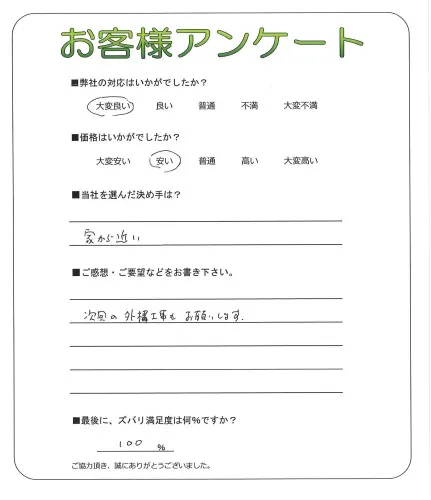 お客様アンケート
■弊社の対応はいかがでしたか?
大変良い 良い 普通 不満 大変不満
■価格はいかがでしたか?
大変安い 安い 普通 高い 大変高い
■当社を選んだ決め手は?
家から近い
■ご感想・ご要望などをお書き下さい。
次回の外構工事もお願いします.
■最後に、ズバリ満足度は何%ですか?
100 %
ご協力頂き、誠にありがとうございました。